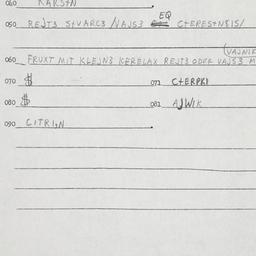 040 KARSTN
050 REJTS S+VARCS/VAJSS EQ C+EPES+NSIS/
(VAJNIK
060 FRUXT MIT KLEJNS KERELAX REJTS ODER VAJSS M
070 $ 071 C+ERPKI
080 $ 081 AJWIK
090 CITRIN